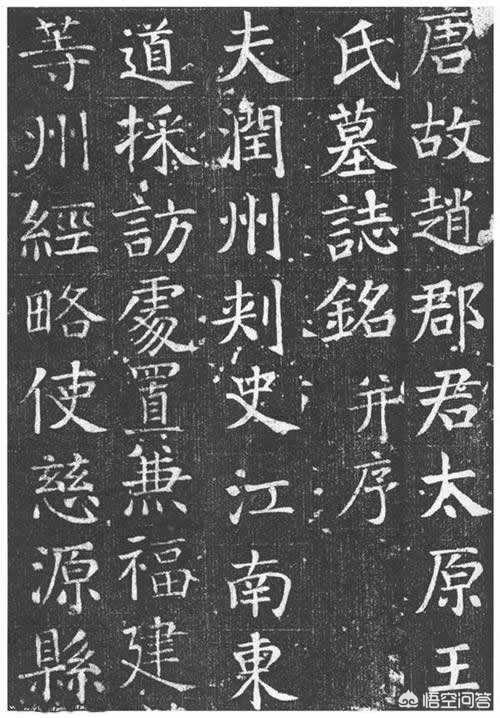 唐故趙郡君太原王
氏墓誌銘并序
夫潤州刺史江南東
道採訪處置兼福建
等州經略使慈源縣
悟空问答